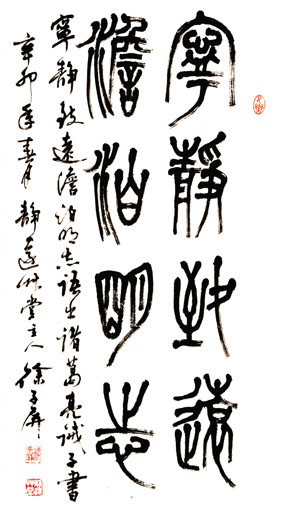 寧靜致遠
澹泊明志
寧靜致遠澹泊明志語出諸葛亮誡子書
辛卯年春月靜遠草堂主人徐子屏